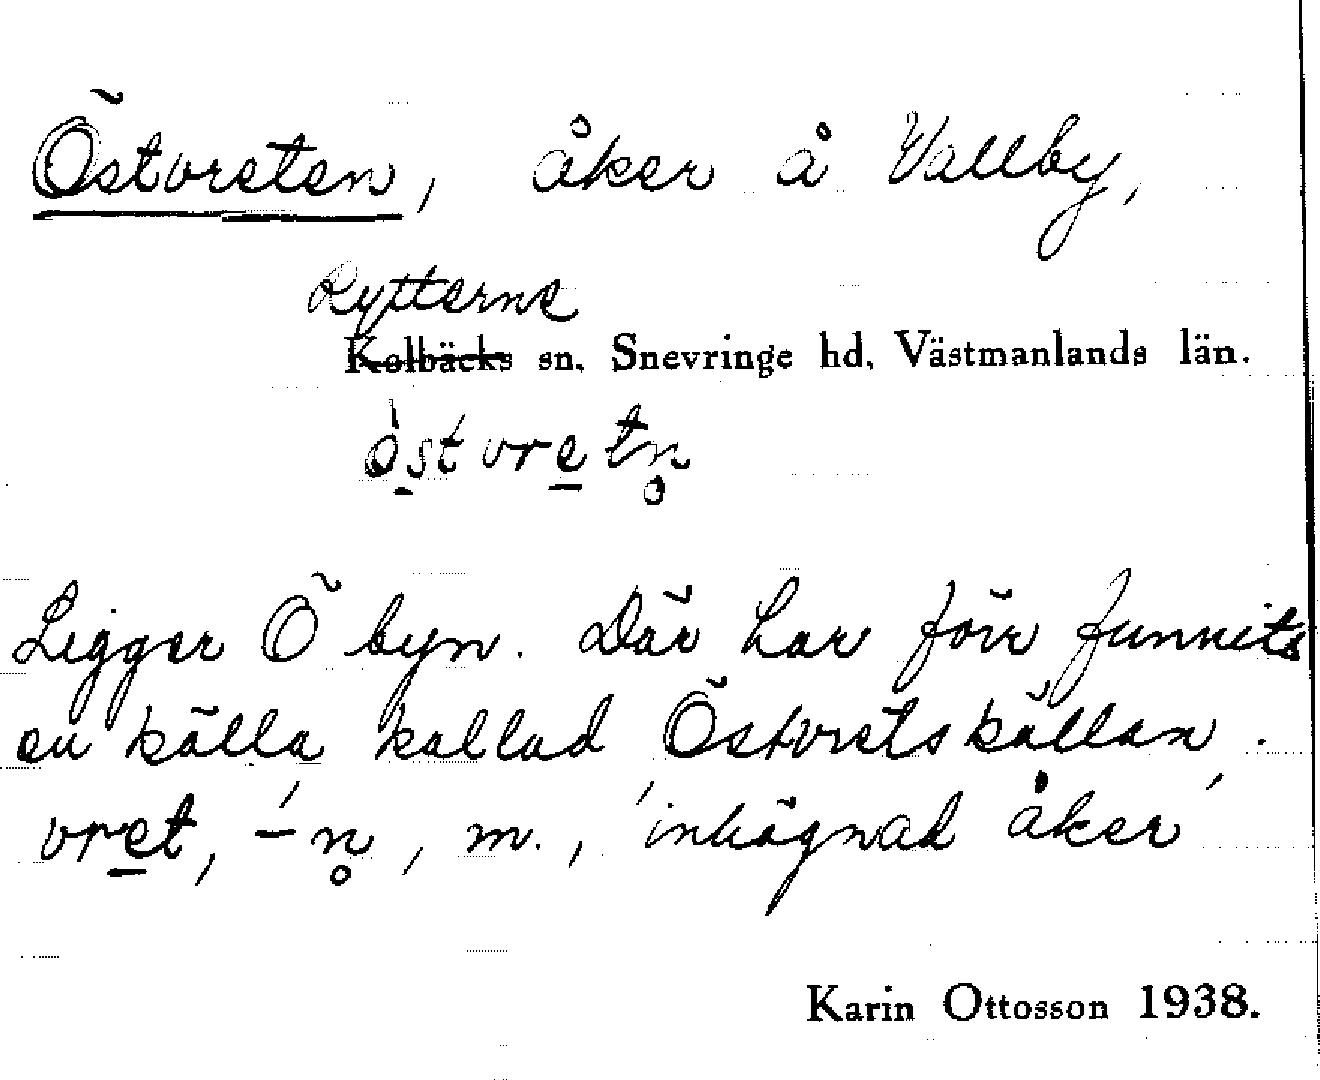 Östvreten, åker å Vallby,
Rytterne
Kolbäcks sn, Snevringe hd, Västmanlands län.
ö̀st vre̲ tn̥
Ligger Ö byn. Där har förr funnits
en källa kallad Östvretskällan.
vre̲t, -́n̥, m., 'inhägnad åker'
Karin Ottosson 1938.